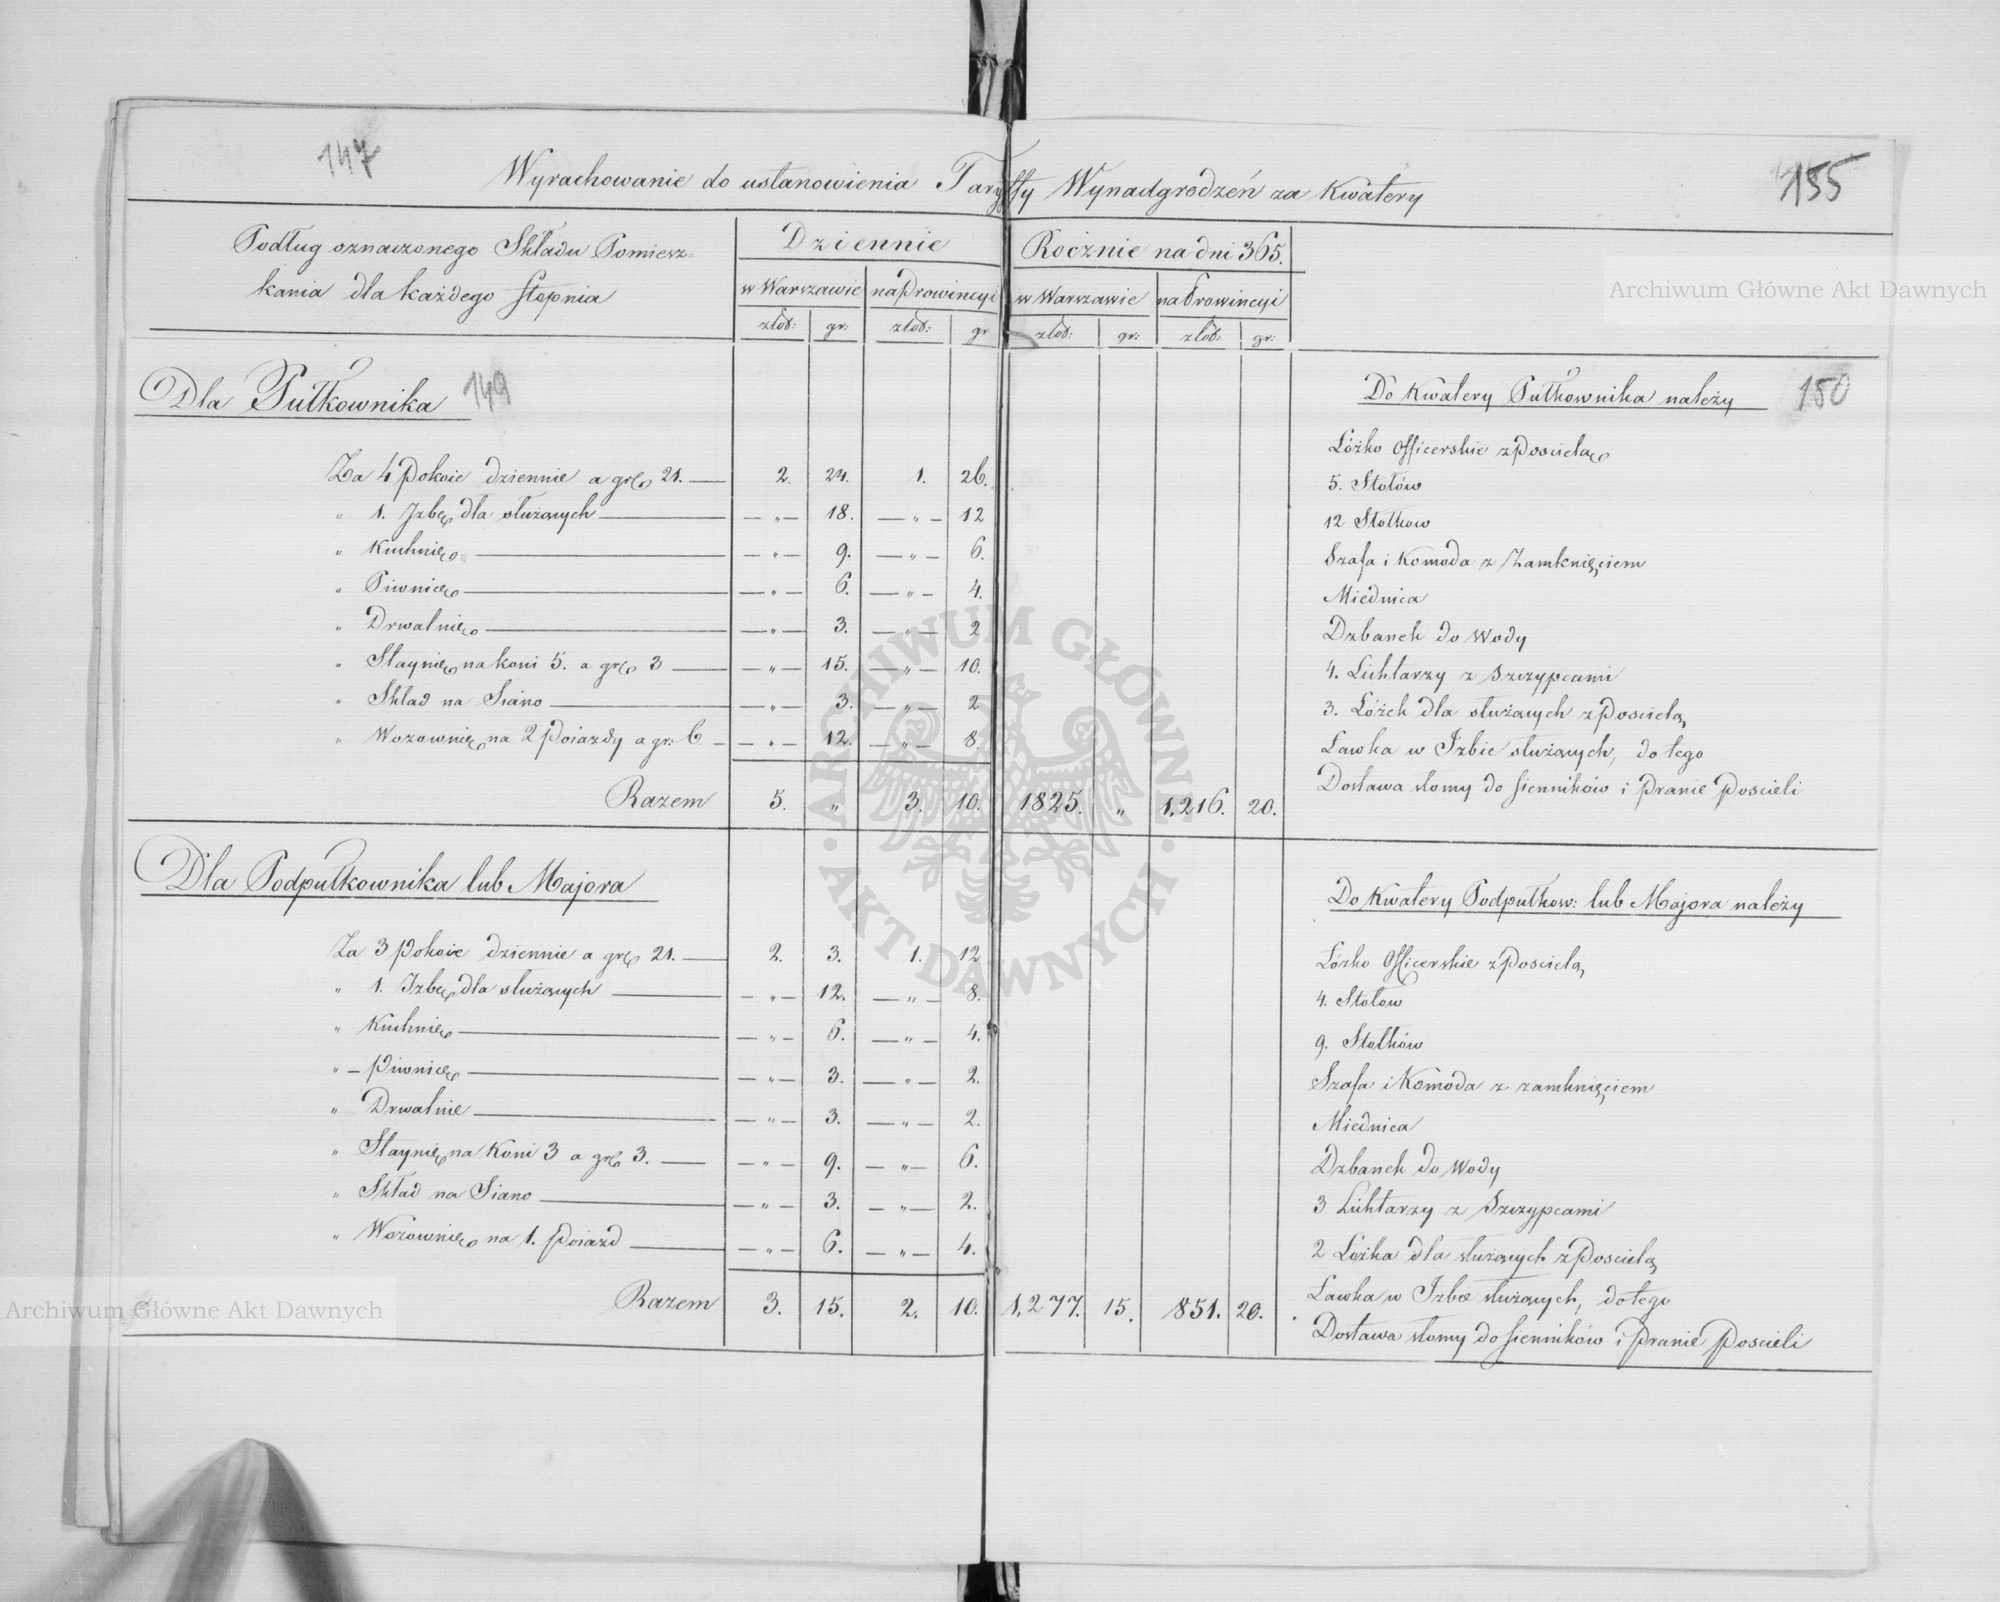 147
155
Wyrachowanie do ustanowienia Taryffy Wynadgrodzeń za Kwatery
Podług oznaczonego Składu Pomiesz=
kania dla każdego stopnia
Dziennie
Rocznie na dni 365.
w Warszawie na Prowincyi w Warszawie na Prowincyi
złot: gr: złot: gr złot: gr: złot: gr:
Dla Pułkownika 149
Za 4 Pokoie dziennie a gr. 21. — 2. 24. 1. 26.
" 1. Izbę dla służących — " — 18. — " — 12
" Kuchnię — " — 9. — " — 6.
" Piwnicę — " — 6. — " — 4.
" Drwalnię — " — 3. — " — 2
" Staynię na koni 5. a gr. 3 — " — 15. — " — 10.
" Skład na Siano — " — 3. — " — 2
" Wozownię na 2 Poiazdy a gr. 6 — " — 12. — " — 8.
Razem 5. " 3. 10. 1825. " 1,216. 20.
Do Kwatery Pułkownika należy 150
Łóżko Officerskie z Pościelą
5. Stołów
12 Stołkow
Szafa i Komoda z Zamknięciem
Miednica
Dzbanek do Wody
4. Lichtarzy z Szczypcami
3. Łóżek dla służących z Pościelą
Ławka w Izbie służących, do tego
Dostawa słomy do sienników i Pranie Pościeli
Dla Podpułkownika lub Majora
Za 3 Pokoie dziennie a gr. 21. — 2. 3. 1. 12
" 1. Izbę dla służących — " — 12. — " — 8.
" Kuchnię — " — 6. — " — 4.
" — Piwnicę — " — 3. — " — 2.
" Drwalnie — " — 3. — " — 2.
" Staynię na Koni 3 a gr. 3. — " — 9. — " — 6.
" Skład na Siano — " — 3. — " — 2.
" Wozownię na 1. Poiazd — " — 6. — " — 4.
Razem 3. 15. 2. 10. 1,277. 15. 851. 20.
Do Kwatery Podpułkow: lub Majora należy
Łóżko Officerskie z Pościelą
4. Stołow
9. Stołków
Szafa i Komoda z zamknięciem
Miednica
Dzbanek do Wody
3 Lichtarzy z Szczypcami
2 Łóżka dla służących z Pościelą
Ławka w Izbie służących, do tego
Dostawa słomy do sienników i Pranie Pościeli
Archiwum Główne Akt Dawnych
ARCHIWUM GŁÓWNE AKT DAWNYCH
Archiwum Główne Akt Dawnych